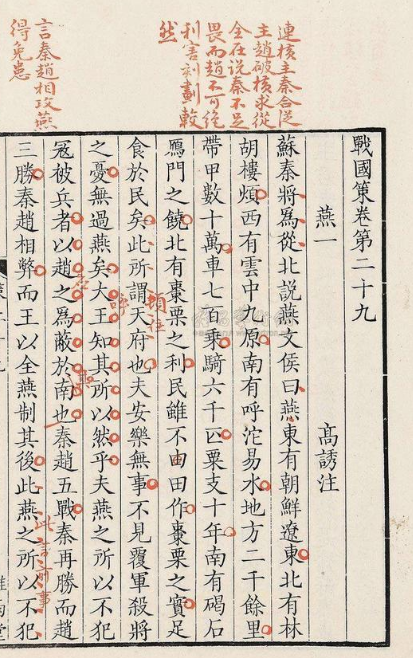 連横主秦合從
主趙破横求從
全在说秦不足
畏而趙不可绝
利害刻劃較
然
言秦趙相攻燕
得免患
戰國策卷第二十九
燕一 高誘注
蘇秦將爲從北説燕文侯曰燕東有朝鮮遼東北有林
胡樓煩西有雲中九原南有呼沱易水地方二千餘里
帶甲數十萬車七百乘騎六千匹粟支十年南有碣石
鴈門之饒北有棗栗之利民雖不由田作棗栗之實足
食於民矣此所謂天府也夫安樂無事不見覆軍殺將
之憂無過燕矣大王知其所以然乎夫燕之所以不犯
寇被兵者以趙之爲蔽於南也秦趙五戰秦再勝而趙
三勝秦趙相弊而王以全燕制其後此燕之所以不犯
此言前事